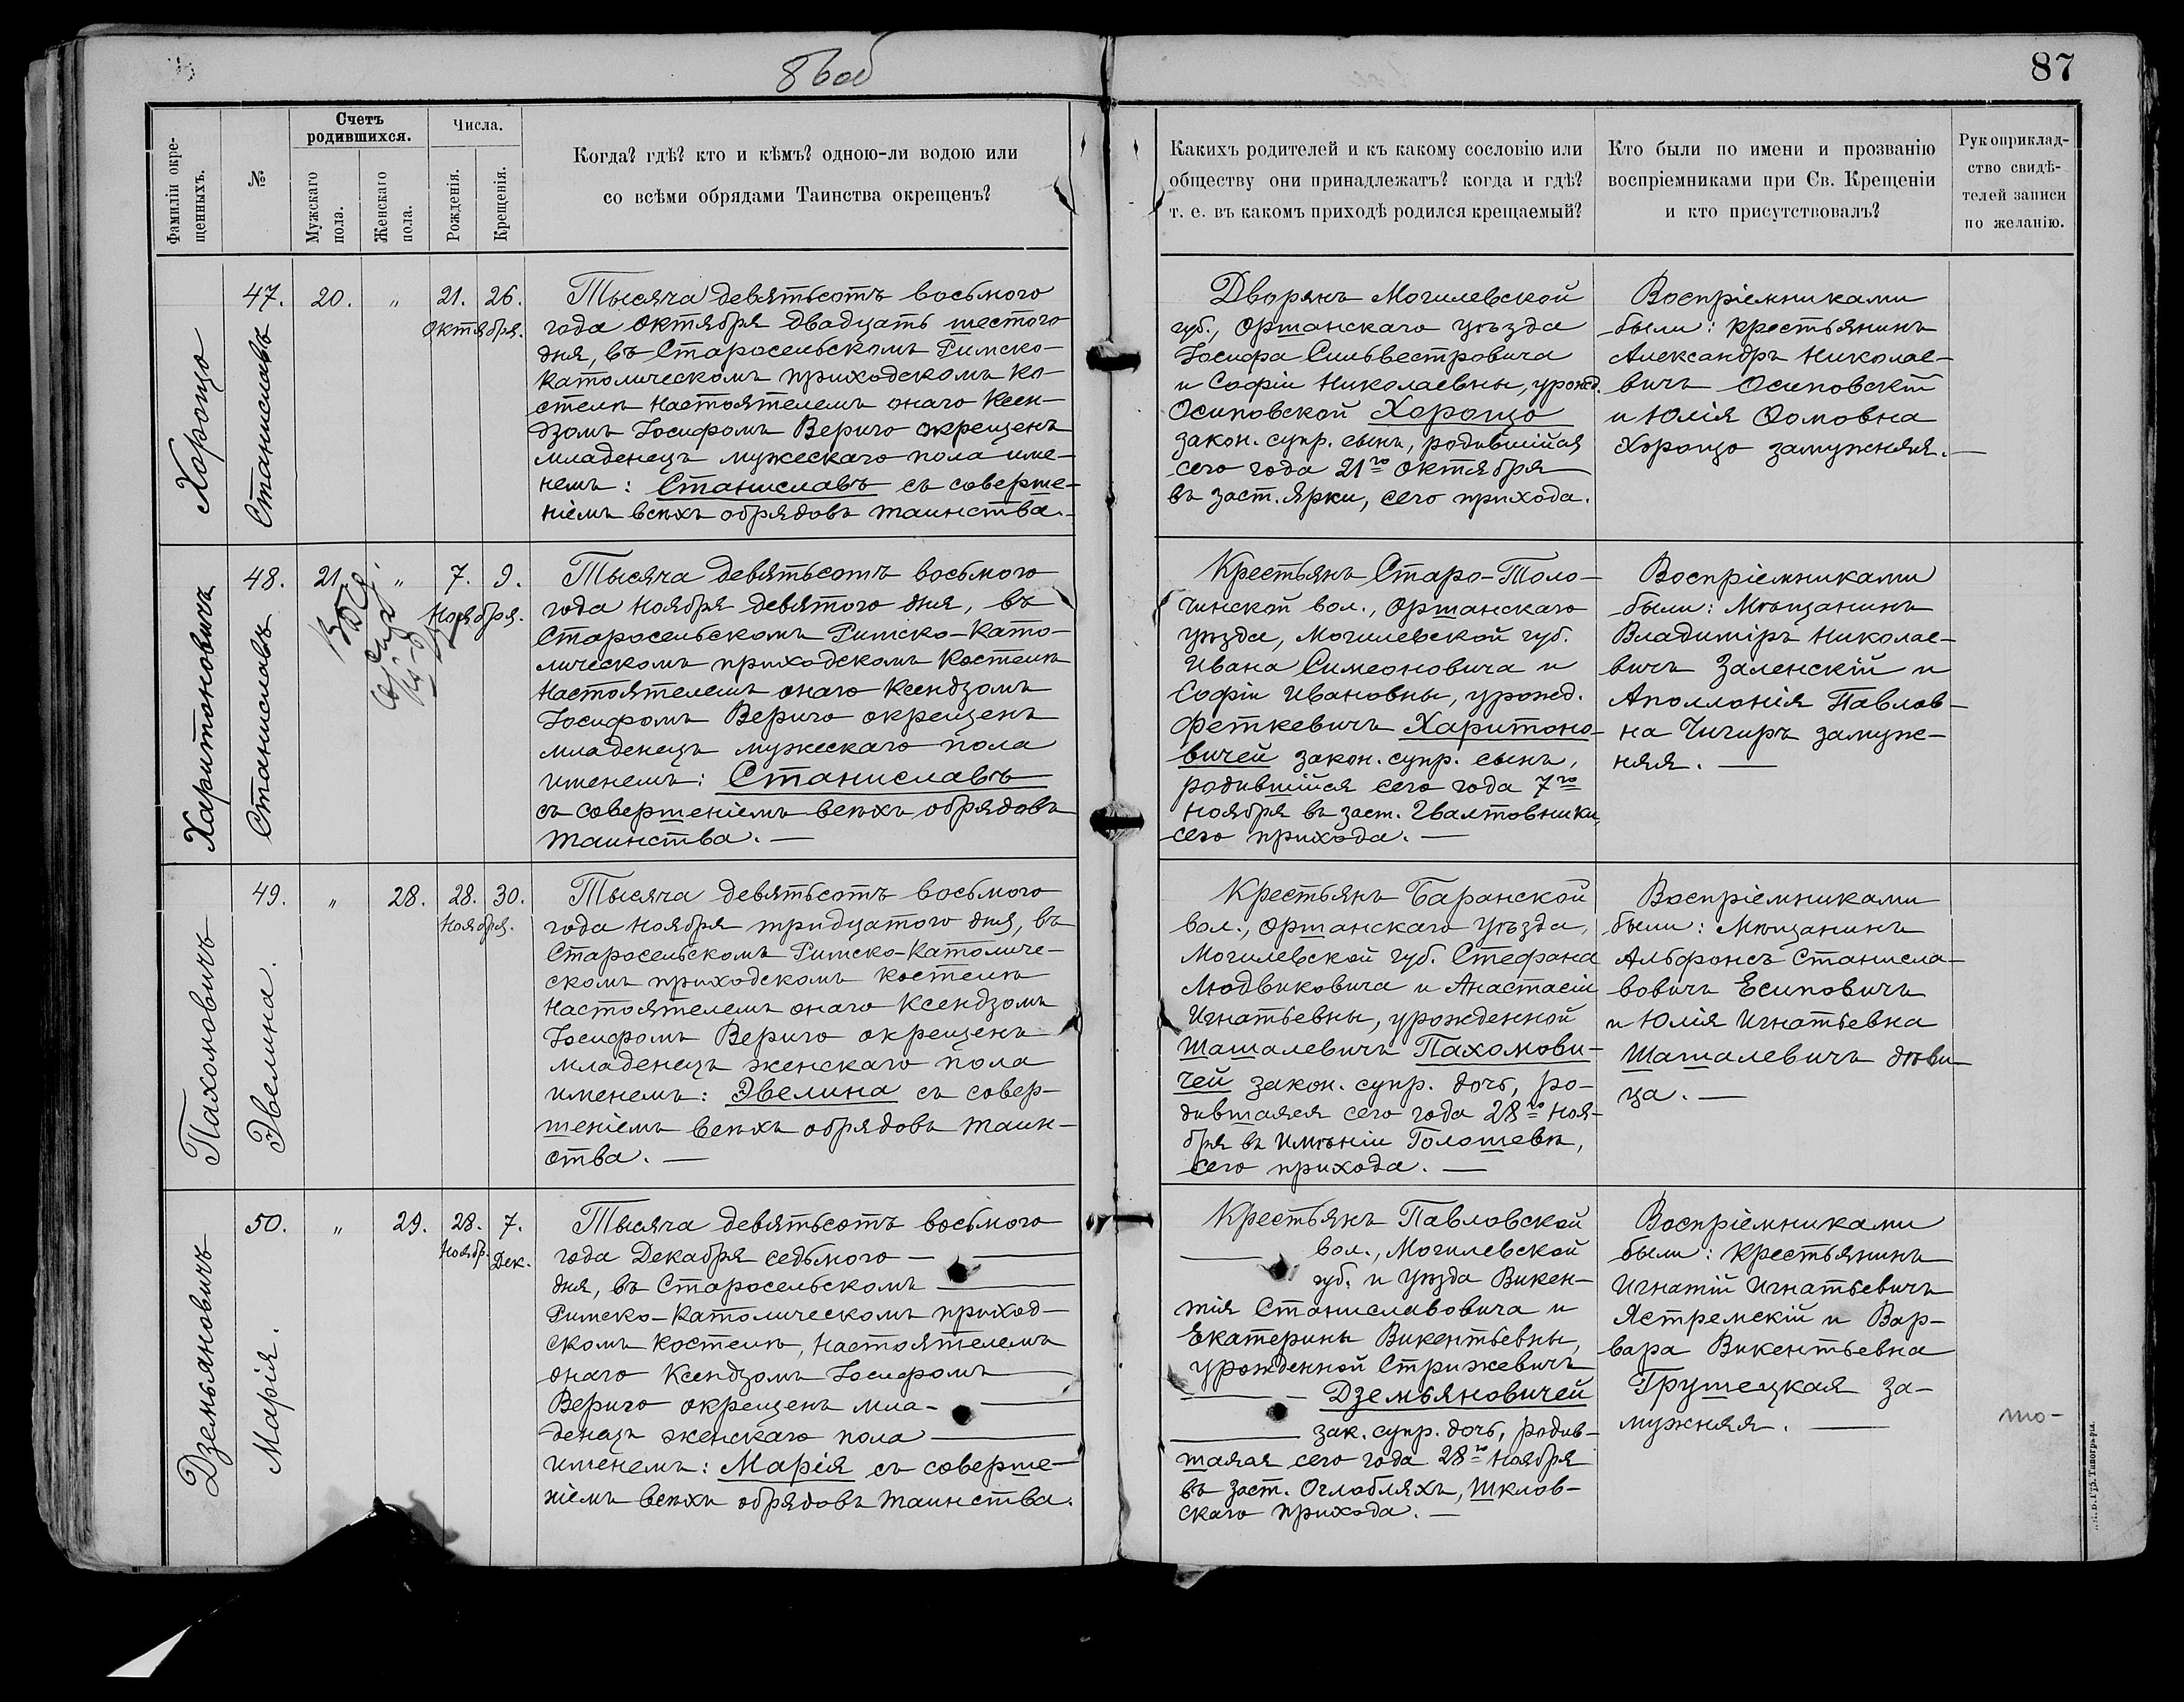 86об
87
Фамиліи окре-
щенныхъ.
№
Счетъ
родившихся.
Мужскаго
пола.
Женскаго
пола.
Числа.
Рожденія.
Крещенія.
Когда? гдѣ? кто и кѣмъ? одною-ли водою или
со всѣми обрядами Таинства окрещенъ?
Какихъ родителей и къ какому сословію или
обществу они принадлежатъ? когда и гдѣ?
т. е. въ какомъ приходѣ родился крещаемый?
Кто были по имени и прозванію
воспріемниками при Св. Крещеніи
и кто присутствовалъ?
Рукоприклад-
ство свидѣ-
телей записи
по желанію.
Хорощо
Станиславъ
47. 20. " 21. 26.
Октября.
Тысяча девятьсотъ восьмого
года Октября двадцать шестого
дня, въ Старосельскомъ Римско-
Католическомъ приходскомъ Ко-
стелѣ Настоятелемъ онаго Ксен-
дзомъ Іосифомъ Вериго окрещенъ
младенецъ мужескаго пола име-
немъ: Станиславъ съ соверше-
ніемъ всѣхъ обрядовъ таинства.
Дворянъ Могилевской
губ., Оршанскаго уѣзда
Іосифа Сильвестровича
и Софіи Николаевны, урожд.
Осиповской Хорощо
закон. супр. сынъ, родившійся
сего года 21го Октября
въ заст. Ярки, сего прихода.
Воспріемниками
были: крестьянинъ
Александръ Николае-
вичъ Осиповскій
и Юлія Ѳомовна
Хорощо замужняя. —
Харитоновичъ
Станиславъ
48. 21. " 7. 9.
Ноября.
Тысяча девятьсотъ восьмого
года Ноября девятого дня, въ
Старосельскомъ Римско-Като-
лическомъ приходскомъ Костелѣ
Настоятелемъ онаго Ксендзомъ
Іосифомъ Вериго окрещенъ
младенецъ мужескаго пола
именемъ: Станиславъ
съ совершеніемъ всѣхъ обрядовъ
таинства. —
Крестьянъ Старо-Толо-
чинской вол., Оршанскаго
уѣзда, Могилевской губ.
Ивана Симеоновича и
Софіи Ивановны, урожд.
Феткевичъ Харитоно-
вичей закон. супр. сынъ,
родившійся сего года 7го
Ноября въ заст. Гвалтовники,
сего прихода. —
Воспріемниками
были: Мѣщанинъ
Владиміръ Николае-
вичъ Заленскій и
Аполлонія Павлов-
на Чигиръ замуж-
няя. —
Пахомовичъ
Эвелина.
49. " 28. 28. 30.
Ноября.
Тысяча девятьсотъ восьмого
года Ноября тридцатого дня, въ
Старосельскомъ Римско-Католиче-
скомъ приходскомъ Костелѣ
Настоятелемъ онаго Ксендзомъ
Іосифомъ Вериго окрещенъ
младенецъ женскаго пола
именемъ: Эвелина съ совер-
шеніемъ всѣхъ обрядовъ таин-
ства. —
Крестьянъ Баранской
вол., Оршанскаго уѣзда,
Могилевской губ. Стефана
Людвиковича и Анастасіи
Игнатьевны, урожденной
Шашалевичъ Пахомови-
чей закон. супр. дочь, ро-
дившаяся сего года 28го Ноя-
бря въ Имѣніи Голошевѣ,
сего прихода. —
Воспріемниками
были: Мѣщанинъ
Альфонсъ Станисла-
вовичъ Есиповичъ
и Юлія Игнатьевна
Шашалевичъ дѣви-
ца. —
Дземьяновичъ
Марія.
50. " 29. 28. 7.
Ноябр. Дек.
Тысяча девятьсотъ восьмого
года Декабря седьмого —
дня, въ Старосельскомъ —
Римско-Католическомъ приход-
скомъ Костелѣ, Настоятелемъ
онаго Ксендзомъ Іосифомъ
Вериго окрещенъ мла-
денецъ женскаго пола —
именемъ: Марія съ соверше-
ніемъ всѣхъ обрядовъ таинства.
Крестьянъ Павловской
— вол., Могилевской
губ. и уѣзда Викен-
тія Станиславовича и
Екатерины Викентьевны,
урожденной Стрижевичъ
— Дземьяновичей
— зак. супр. дочь, родив-
шаяся сего года 28го Ноября
въ заст. Оглобляхъ, Шклов-
скаго прихода. —
Воспріемниками
были: крестьянинъ
Игнатій Игнатьевичъ
Ястремскій и Вар-
вара Викентьевна
Грушецкая за-
мужняя. —
то-
Губ. Типографія.